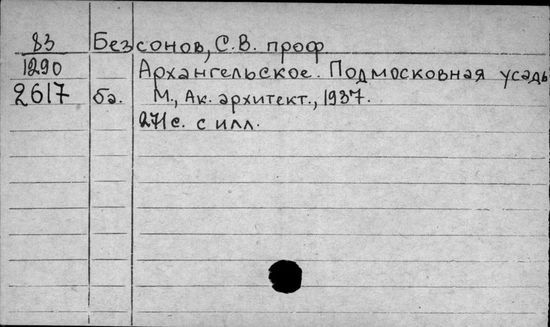 83 Безсонов, С.В. проф
1290 Архангельское. Подмосковная усадь
2617 ба. М., Ак. архитект., 1937.
271с. с илл.